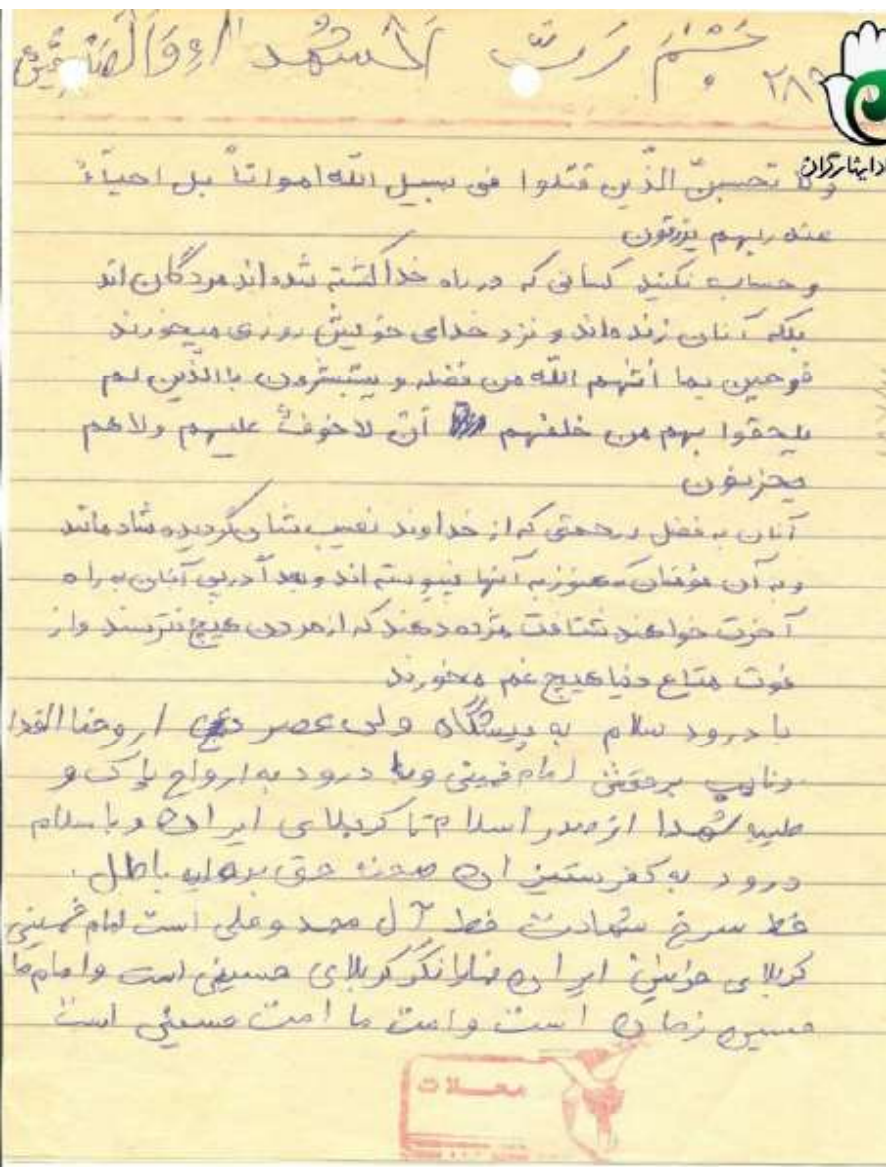 بسم رب الشهداء والصدیقین
ولا تحسبنّ الذّین قتلوا فی سبیل اللّه امواتاً بل احیاءٌ
عند ربهم یزرقون
و حساب نکنید کسانی که در راه خدا کشته شده‌اند مردگان اند
بلکه آنان زنده‌اند و نزد خدای خویش روزی میخورند
فرحین بما أتهم اللّه من فضله و یستبشرون باالذّین لم
یلحقوا بهم من خلفهم أن لاخوفٌ علیهم ولاهم
یحزنون
آنان به فضل و رحمتی که از خداوند نصیبشان گردیده شادمانند
و به آن مؤمنان که هنوز به آنها نپیوسته اند و بعداً در پی آنان به راه
آخرت خواهند شتافت مژده دهند که از مردن هیچ نترسند و از
فوت متاع دنیا هیچ غم مخورند
با درود سلام به پیشگاه ولی عصر (عج) اروحنا الفدا
و نایب برحقش امام خمینی و با درود به ارواح پاک و
طیبه شهدا از صدر اسلام تا کربلای ایران و با سلام
درود به کفرستیزان صحنه حق برعلیه باطل.
خط سرخ شهادت خط آل محمد و علی است امام خمینی
کربلای خونین ایران نمایانگر کربلای حسینی است و امام ما
حسین زمان است و امت ما امت حسینی است
محلات